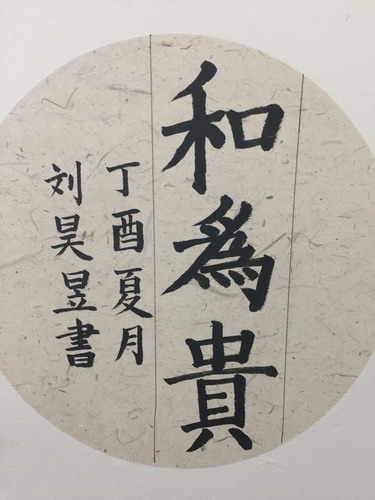 和為貴
丁酉夏月
刘昊昱書